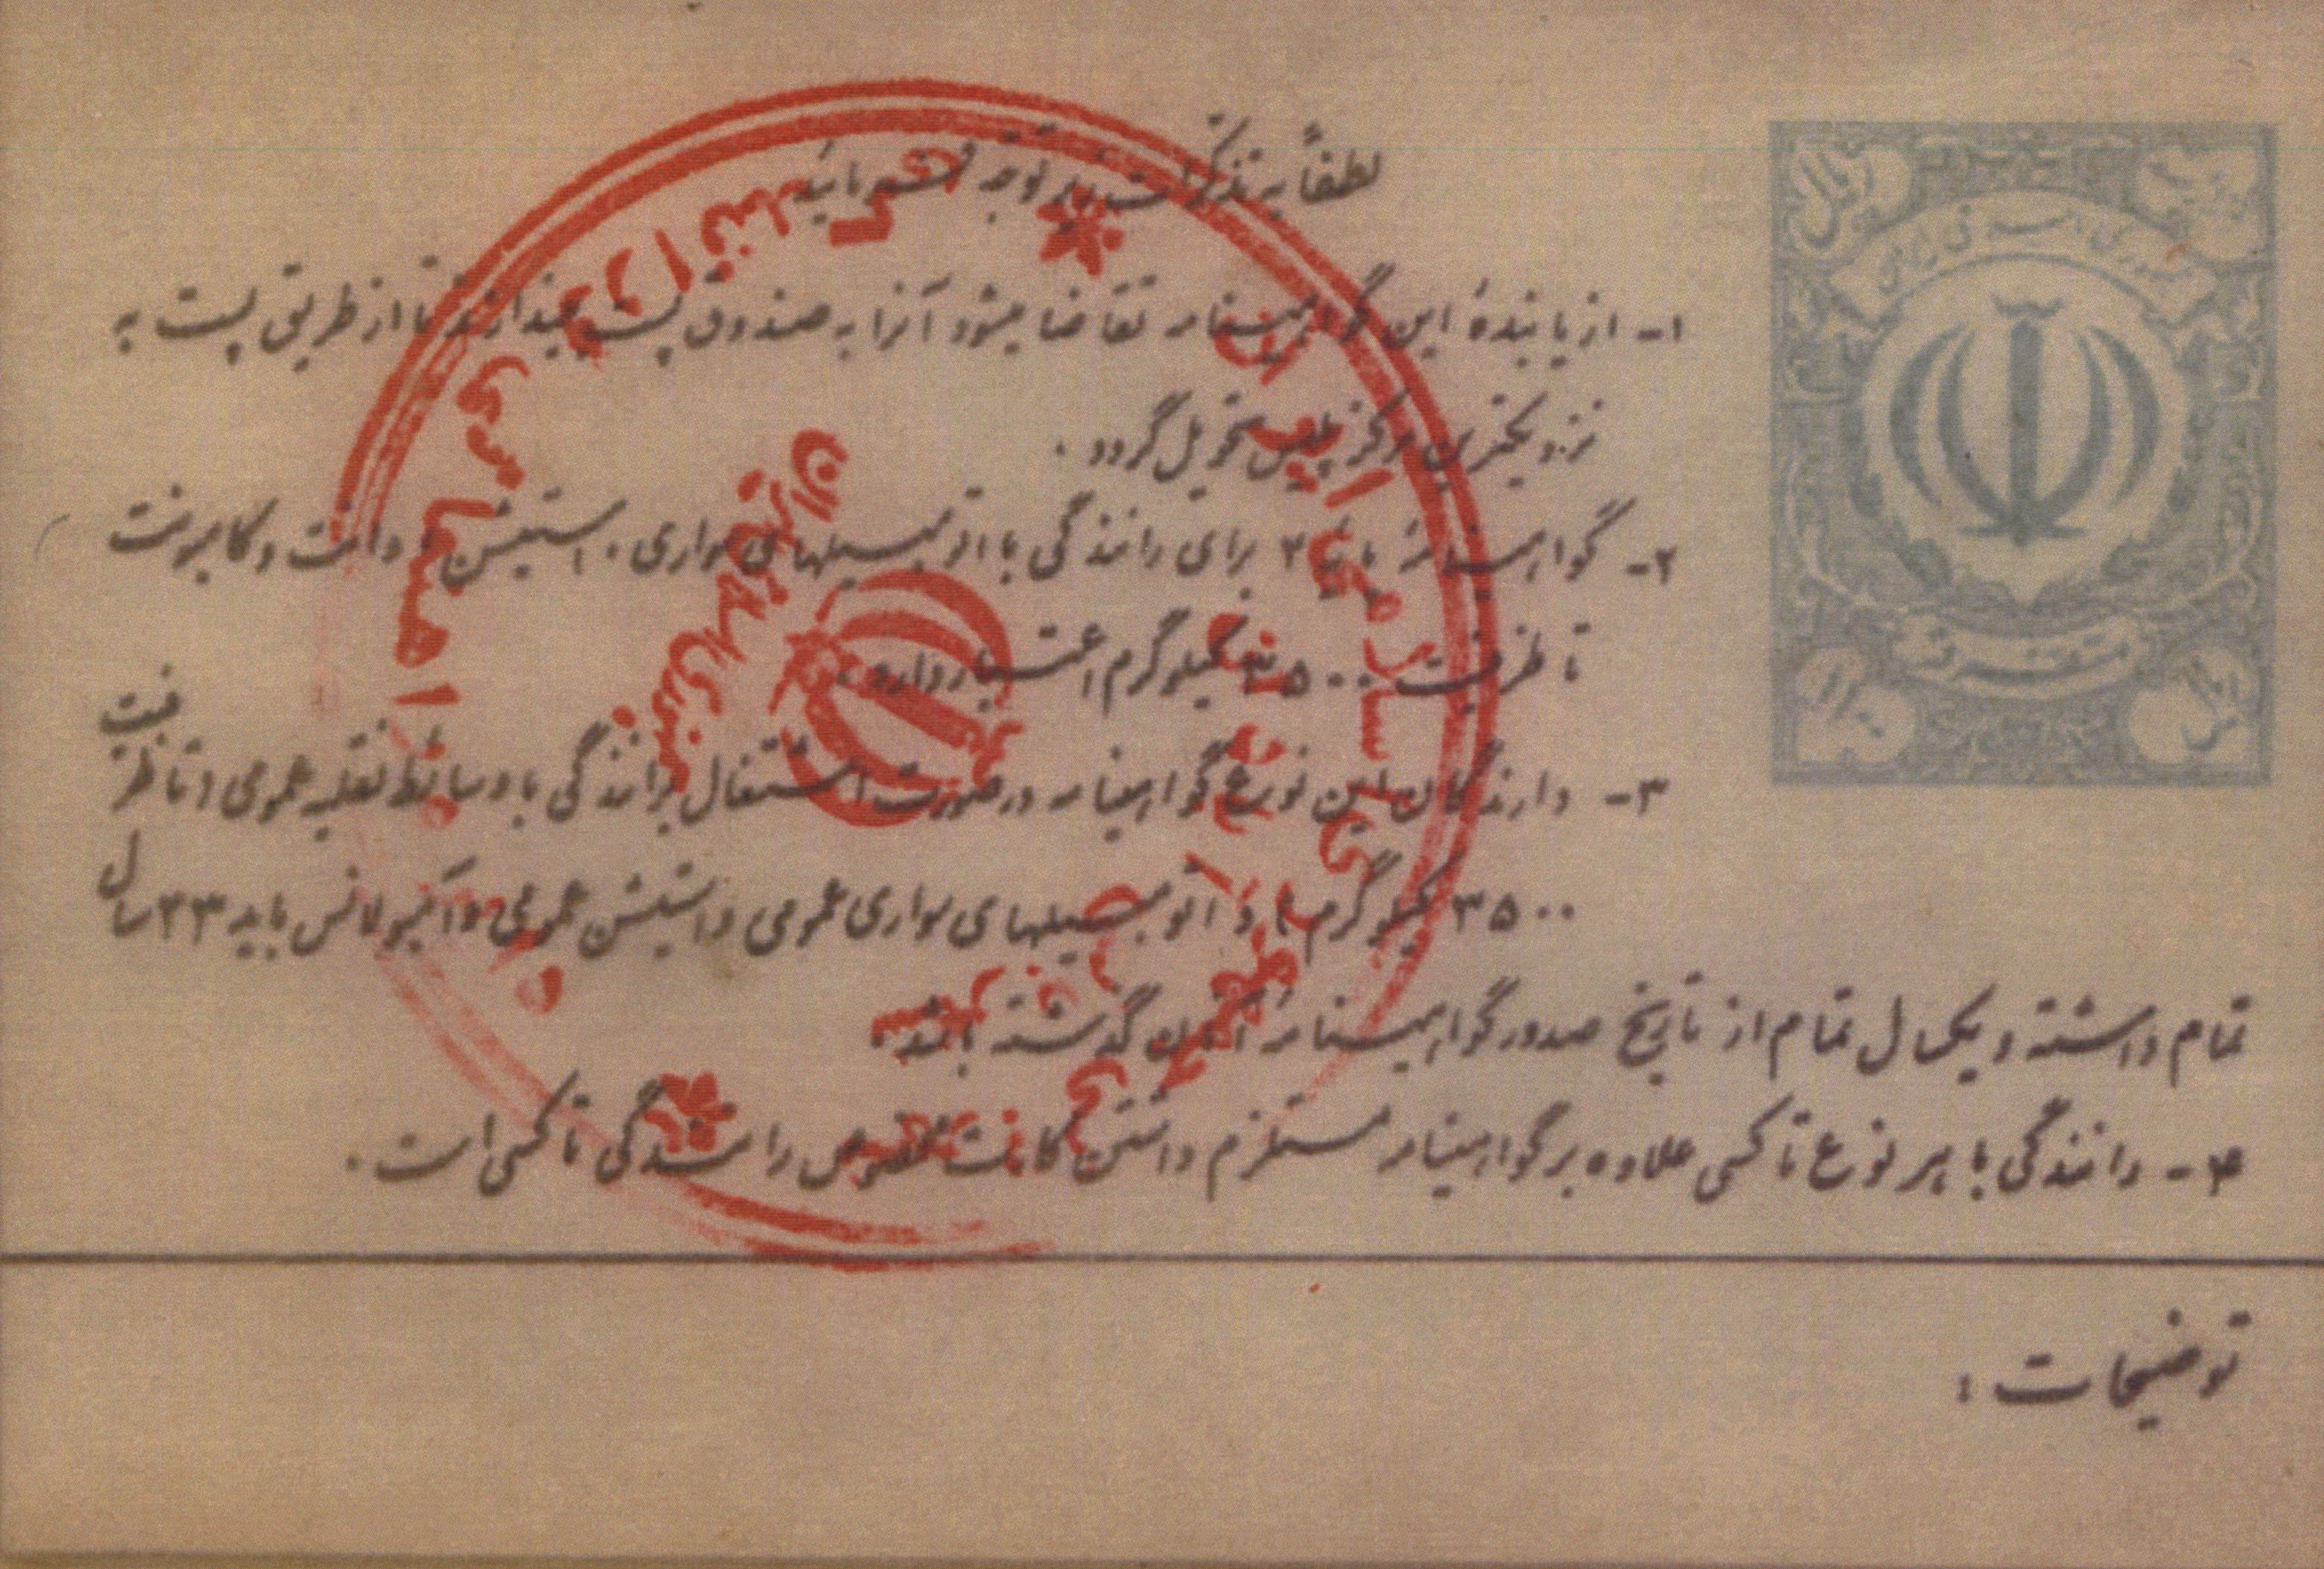 لطفاً به تذکرات زیر توجه فرمایید
۱- از یابندهٔ این گواهینامه تقاضا میشود آنرا به صندوق پست بیندازند تا از طریق پست به
نزدیکترین مرکز پلیس تحویل گردد.
۲- گواهینامهٔ پایه ۲ برای رانندگی با اتومبیلهای سواری، استیشن، وانت و کامیونت
تا ظرفیت ۳۵۰۰ کیلوگرم اعتبار دارد.
۳- دارندگان این نوع گواهینامه در صورت اشتغال برانندگی با وسائط نقلیه عمومی و تا ظرفیت
۳۵۰۰ کیلوگرم و اتومبیلهای سواری عمومی و استیشن عمومی و آمبولانس باید ۲۳ سال
تمام داشته و یکسال تمام از تاریخ صدور گواهینامهٔ آنان گذشته باشد.
۴- رانندگی با هر نوع تاکسی علاوه بر گواهینامه مستلزم داشتن کارت مخصوص رانندگی تاکسی است.
توضیحات:
جمهوری اسلامی ایران
ریال